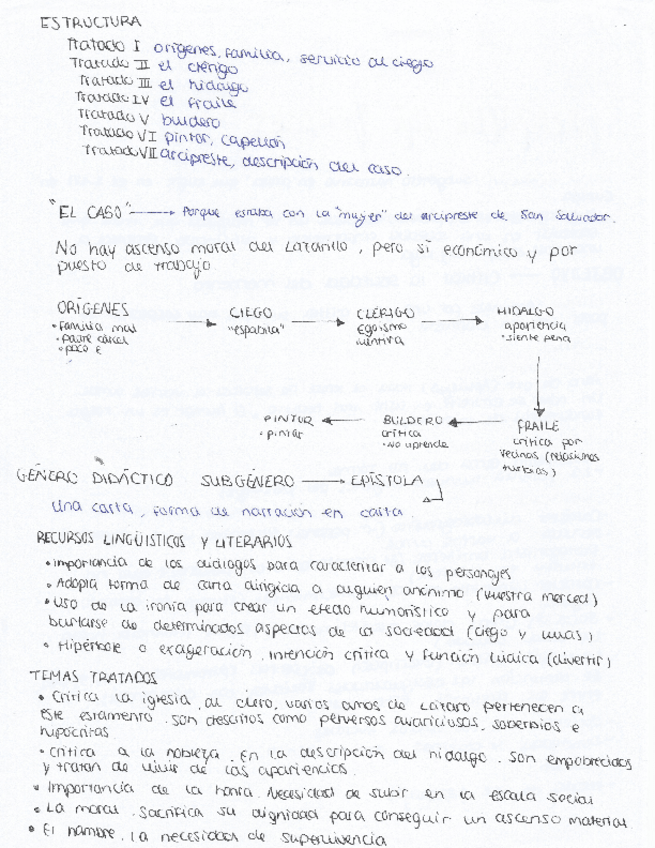 ESTRUCTURA
Tratado I orígenes, familia, servicio al ciego
Tratado II el clérigo
Tratado III el hidalgo
Tratado IV el fraile
Tratado V buldero
Tratado VI pintor, capellán
Tratado VII arcipreste, descripción del caso.
"EL CASO" → Porque estaba con la "mujer" del arcipreste de San Salvador.
No hay ascenso moral del Lazarillo, pero sí económico y por
puesto de trabajo
ORÍGENES → CIEGO → CLÉRIGO → HIDALGO
• Familia mal
• padre cárcel
• poco €
"espabila"
Egoísmo
mentira
apariencia
• siente pena
PINTOR ← BULDERO ← FRAILE
• pintar
crítica
• No aprende
crítica por
vecinas (relaciones
turbias)
GÉNERO DIDÁCTICO SUBGÉNERO → EPÍSTOLA
una carta, forma de narración en carta.
RECURSOS LINGÜÍSTICOS Y LITERARIOS
• Importancia de los diálogos para caracterizar a los personajes
• Adopta forma de carta dirigida a alguien anónimo (vuestra merced)
• Uso de la ironía para crear un efecto humorístico y para
burlarse de determinados aspectos de la sociedad (ciego y uvas)
• Hipérbole o exageración. Intención crítica y función lúdica (divertir)
TEMAS TRATADOS
• Crítica la iglesia, al clero, varios amos de Lázaro pertenecen a
este estamento. Son descritos como perversos avariciosos, soberbios e
hipócritas.
• Crítica a la nobleza. En la descripción del hidalgo. Son empobrecidos
y tratan de vivir de las apariencias.
• Importancia de la honra. Necesidad de subir en la escala social
• La moral. Sacrifica su dignidad para conseguir un ascenso material.
• El hambre. La necesidad de supervivencia